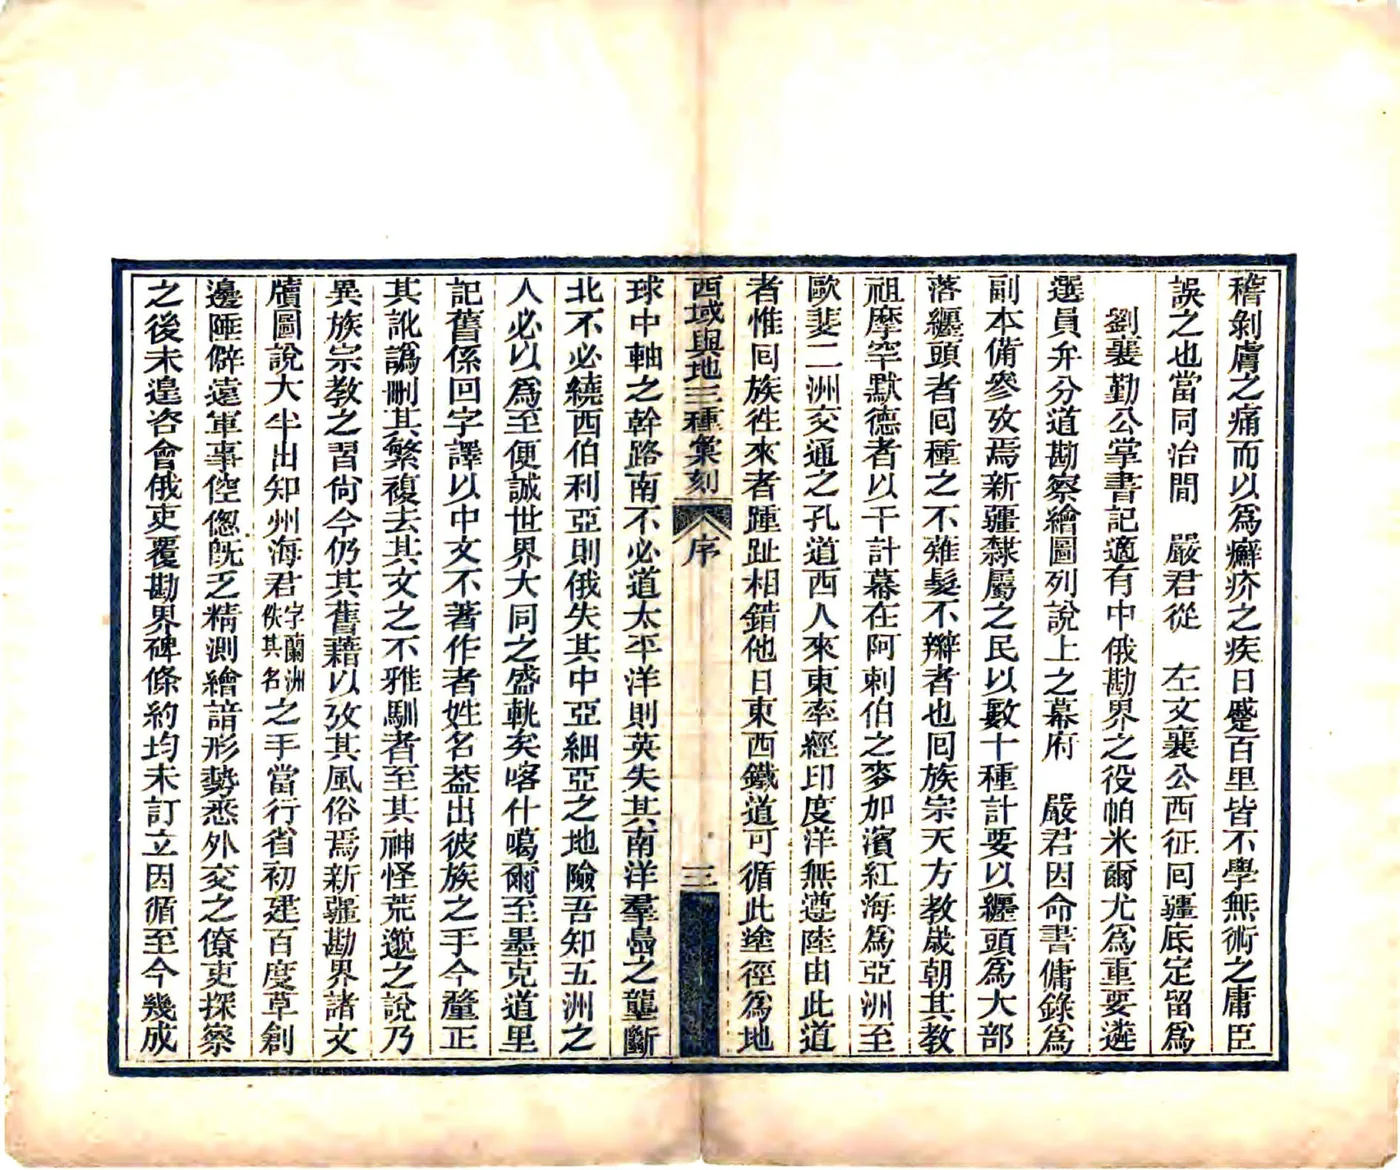 稽剝膚之痛而以爲癬疥之疾日蹙百里皆不學無術之庸臣
誤之也當同治間　嚴君從　左文襄公西征囘疆底定留爲
劉襄勤公掌書記適有中俄勘界之役帕米爾尤爲重要遴
選員弁分道勘察繪圖列說上之幕府　嚴君因命書傭錄爲
副本備參攷焉新疆隸屬之民以數十種計要以纏頭爲大部
落纏頭者囘種之不薙髮不辮者也囘族宗天方教歲朝其教
祖摩罕默德者以千計幕在阿剌伯之麥加濱紅海爲亞洲至
歐斐二洲交通之孔道西人來東率經印度洋無遵陸由此道
者惟囘族徃來者踵趾相錯他日東西鐵道可循此塗徑爲地
西域輿地三種彙刻　序　三
球中軸之幹路南不必道太平洋則英失其南洋羣島之壟斷
北不必繞西伯利亞則俄失其中亞細亞之地險吾知五洲之
人必以爲至便誠世界大同之盛軌矣喀什噶爾至墨克道里
記舊係回字譯以中文不著作者姓名葢出彼族之手今釐正
其訛譌刪其繁複去其文之不雅馴者至其神怪荒邈之說乃
異族宗教之習尙今仍其舊藉以攷其風俗焉新疆勘界諸文
牘圖說大半出知州海君字蘭洲佚其名之手當行省初建百度草創
邊陲僻遠軍事倥傯旣乏精測繪諳形勢悉外交之僚吏探察
之後未遑咨會俄吏覆勘界碑條約均未訂立因循至今幾成